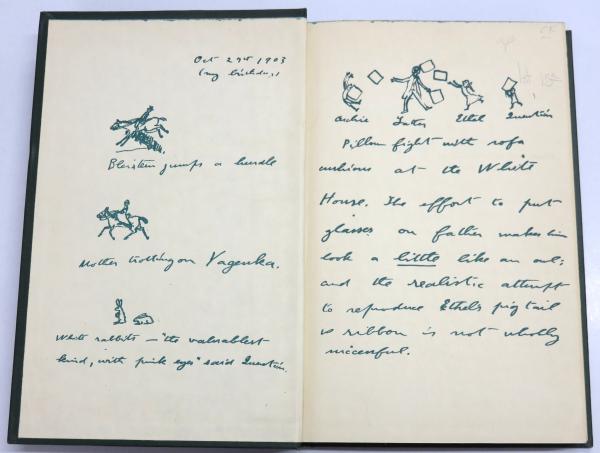 Oct 27th 1903
(my birthday)
Bleistein jumps a hurdle
Mother trotting on Yagenka.
White rabbits – "the valuablest
kind, with pink eyes" said Quentin.
Archie Father Ethel Quentin
Pillow fight with sofa
cushions at the White
House. The effort to put
glasses on father makes him
look a little like an owl;
and the realistic attempt
to reproduce Ethel's pigtail
& ribbon is not wholly
successful.